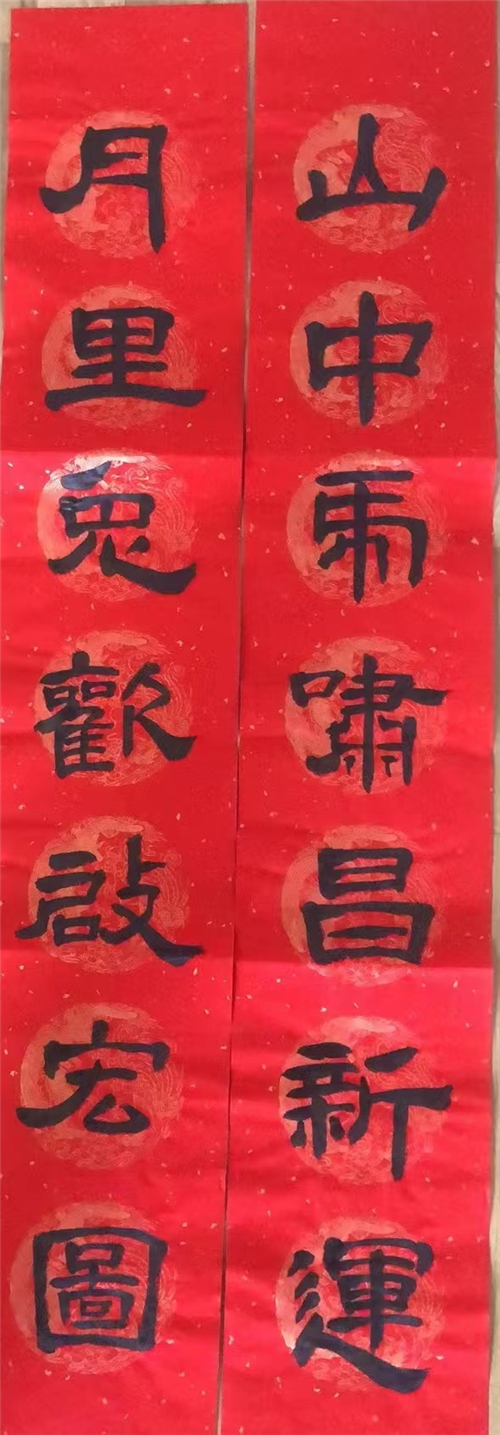 山中虎嘯昌新運
月里兎歡啟宏圖